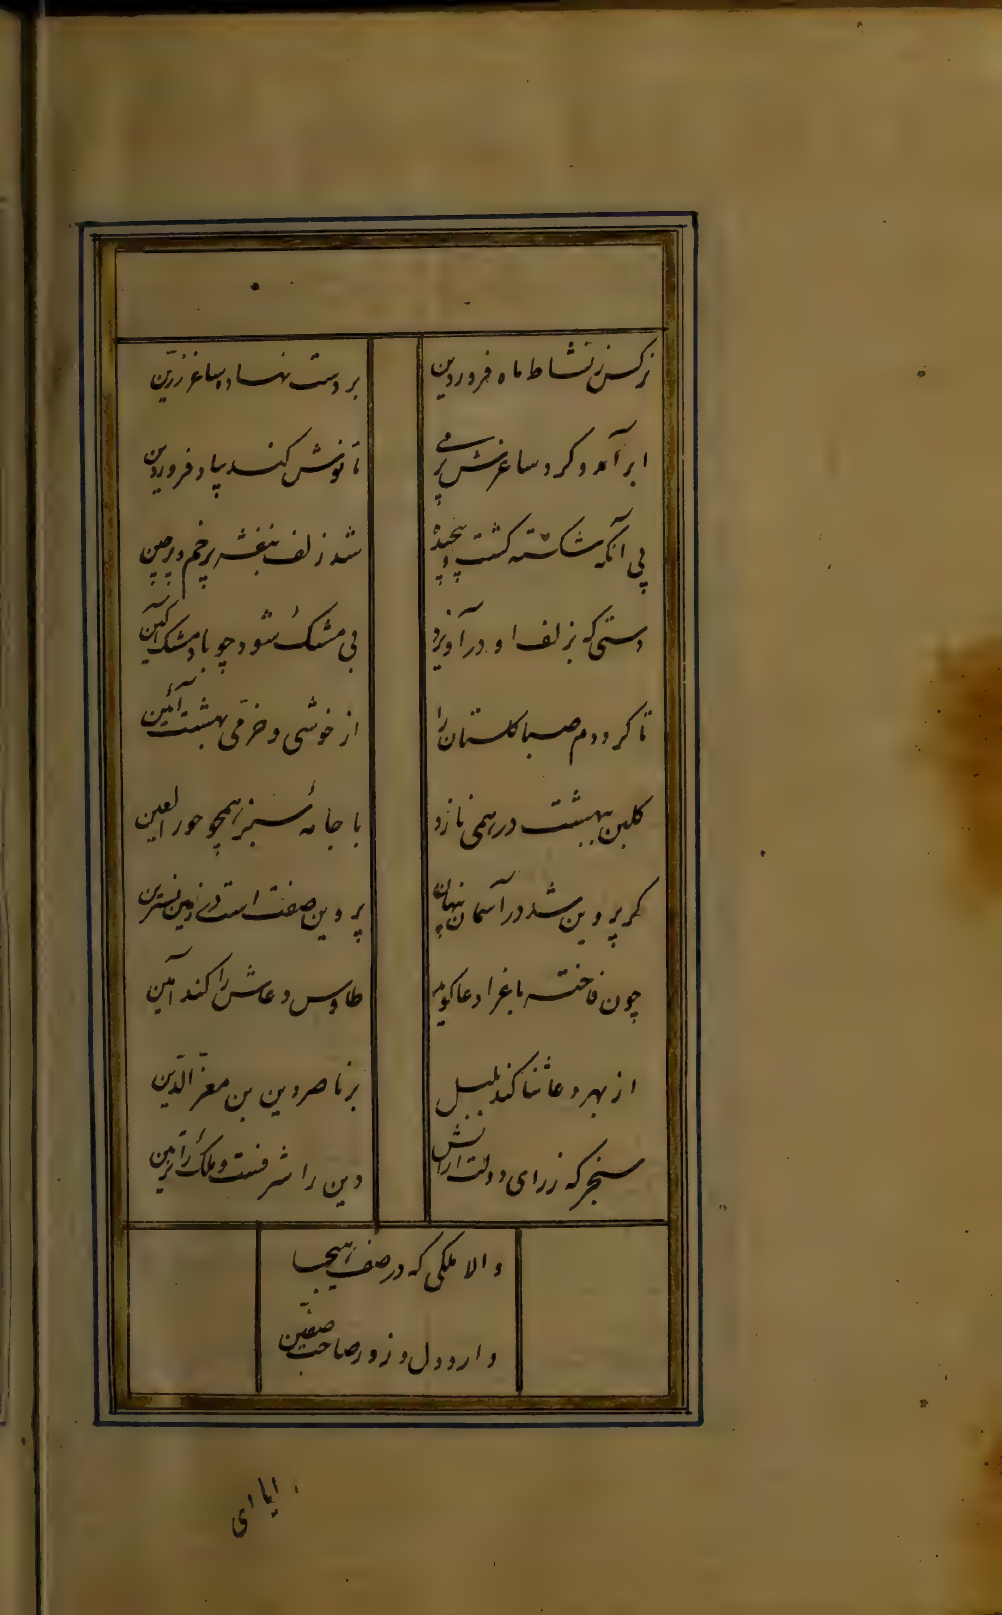 نرکس ز نشاط ماه فروردین
بر دست نهاد ساغر زرین
ابر آمد و کرد ساغرش پر می
تا نوش کند بیاد فروردین
بی آنکه شکسته کشت و پیچیده
شد زلف بنفشه پر خم و پر چین
دستی که بزلف او در آویزد
بی مشک شود چو باد مشک آکین
تا کرد دم صبا کلستان را
از خوشی و خرمی بهشت آئین
کلبن ببهشت در همی نازد
با جامهٔ سبز همچو حور العین
کر پروین شد در آسمان پنهان
پروین صفت است در زمین نسرین
چون فاخته باغ را دعا کوید
طاوس دعاش را کند آمین
از بهر دعا ثنا کند بلبل
بر ناصر دین بن معزّ الدّین
سنجر که ز رای و دولت ارانش
دین را شرفست و ملک را تزیین
والا ملکی که در صف هیجا
دارد دل و زور صاحب صفّین
ایا ای